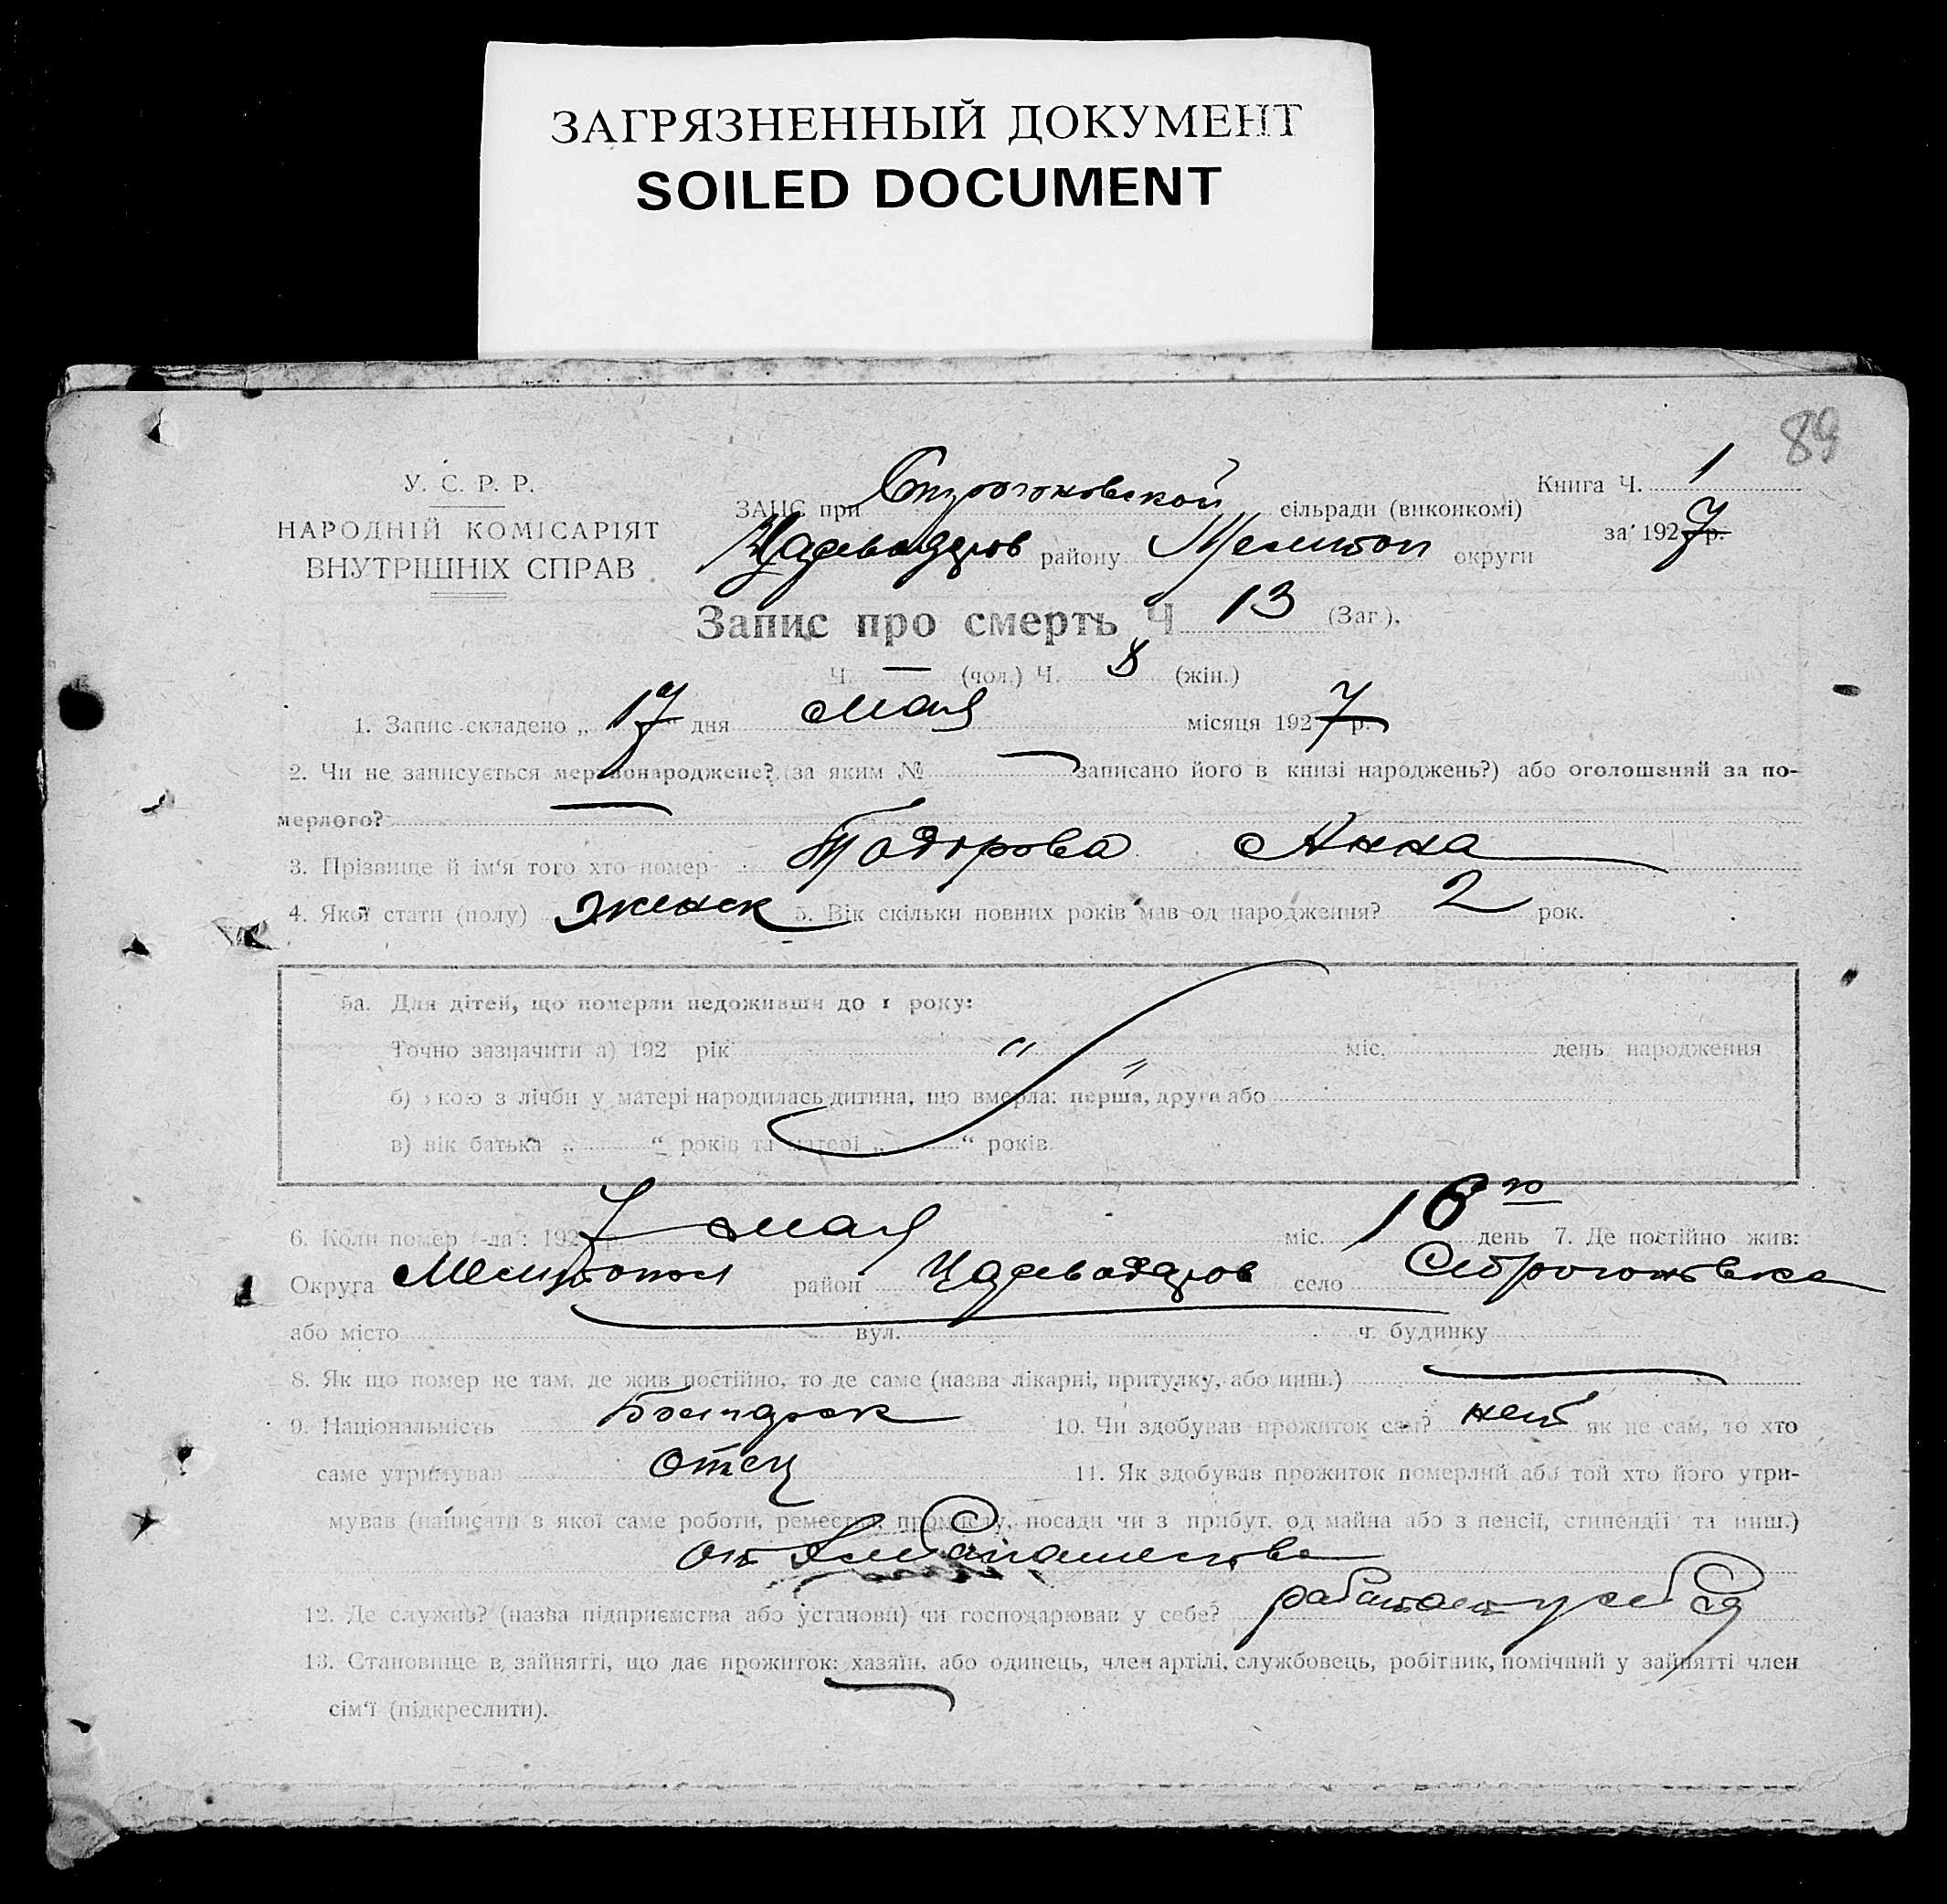 ЗАГРЯЗНЕННЫЙ ДОКУМЕНТ
SOILED DOCUMENT
89
У. С. Р. Р.
НАРОДНІЙ КОМІСАРІЯТ
ВНУТРІШНІХ СПРАВ
Книга Ч. 1
за 1927 р.
ЗАПС при Строгоновской сільради (виконкомі)
района Мелитоп округи
Запис про смерть Ч 13 (Заг.).
Ч. — (чол.) Ч. 8 (жін.)
1. Запис складено „17" дня мая місяця 1927 р.
2. Чи не записується мертвонароджене? (за яким № — записано його в книзі народжень?) або оголошений за по-
мерлого? —
3. Прізвище й ім'я того хто помер Тодорова Анна
4. Якої стати (полу) женск 5. Вік скільки повних років мав од народження? 2 рок.
5а. Для дітей, що померли недоживши до 1 року:
Точно зазначити а) 192 рік " міс. день народження
б) якою з лічби у матері народилась дитина, що вмерла: перша, друга або
в) вік батька „ “ років та матері „ “ років.
6. Коли помер (-ла): 1927 р. мая міс. 16го день 7. Де постійно жив:
Округа Мелитопол район село Строгоновка
або місто вул. ч. будинку
8. Як що помер не там, де жив постійно, то де саме (назва лікарні, притулку, або инш.) —
9. Національність Болгарск 10. Чи здобував прожиток сам? нет як не сам, то хто
саме утримував отец 11. Як здобував прожиток померлий або той хто його утри-
мував (написати з якої саме роботи, ремества, промислу, посади чи з прибут. од майна або з пенсії, стипендії та инш.)
от хлебопашества
12. Де служив? (назва підприємства або установи) чи господарював у себе? работает у себя
13. Становище в зайнятті, що дає прожиток: хазяїн, або одинець, член артілі, службовець, робітник, помічний у зайнятті член
сім'ї (підкреслити).